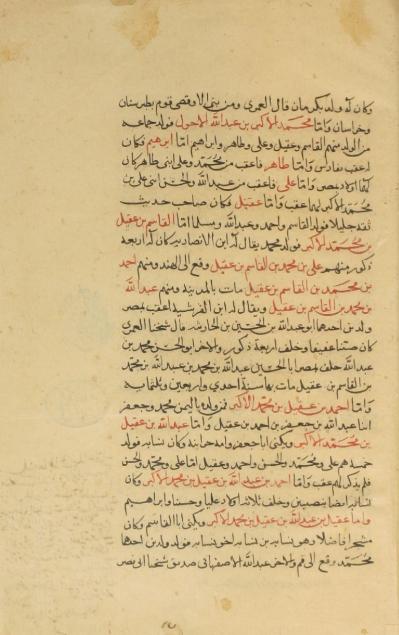 وكان له ولد بكرمان قال العمري ومن بني الاوقص قوم بطبرستان
وخراسان واما محمد الاكبر بن عبد الله الاحول فولد جماعه
من الولد منهم القاسم وعقيل وعلى وطاهر وابراهيم اما ابرهيم فكان
اعقب بفارس واما طاهر فاعقب من محمد وعلى ابنى طاهر كان
لهما اولاد بمصر واما على فاعقب من عبد الله والحسن ابنى على بن
محمد الاكبر لهما عقب واما عقيل فكان صاحب حديث
ثقة جليلا فولد القاسم واحمد وعبد الله ومسلما اما القاسم بن عقيل
بن محمد الاكبر فولد محمد يقال له ابن الانصاريه كان له اربعة
ذكور منهم على بن محمد بن القاسم بن عقيل وقع الى الهند ومنهم احمد
بن محمد بن القاسم بن عقيل مات بالمدينة ومنهم عبد الله
بن محمد بن القاسم بن عقيل ويقال له ابن القرشية اعقب بمصر
ولدين احدهما ابو عبد الله بن الحسين بن قال شيخنا العمري
كان عفيفا وخلف اربعة ذكور والاخر ابو الحسن محمد بن
عبد الله خلف بمصر ابا الحسين عبد الله بن محمد بن عبد الله بن محمد
بن القاسم بن عقيل مات بها سنة احدى واربعين وثلثمايه
واما احمد بن عقيل بن محمد الاكبر فمن ولده باليمن محمد وجعفر
ابنا عبد الله بن جعفر بن احمد بن عقيل واما عبد الله بن عقيل
بن محمد الاكبر ويكنى ابا جعفر وكان نسابه فولد
خمسة هم على ومحمد والحسن واحمد وعقيل اما على ومحمد والحسن
فلم يذكر لهم عقب واما احمد بن عبد الله بن عقيل بن محمد الاكبر وكان
نسابه ايضا بنصيبين وخلف ثلاثة اولاد عليا وحسنا وابراهيم
واما عقيل بن عبد الله بن عقيل بن محمد الاكبر ويكنى ابا القاسم وكان
مشجرا فاضلا وهو نسابه بن نسابه اخو نسابه فولد ولدين احدهما
محمد وقع الى قم والاخر عبد الله الاصفهانى صديق شيخنا ابى نصر